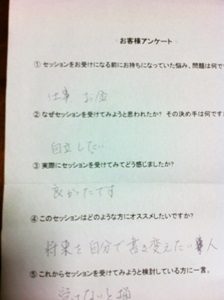 お客様アンケート
① セッションをお受けになる前にお持ちになっていた悩み、問題は何で
仕事 お金
② なぜセッションを受けてみようと思われたか? その決め手は何です
自立したい
③ 実際にセッションを受けてみてどう感じましたか?
良かたてす
④ このセッションはどのような方にオススメしたいですか?
将来を自分で書き変えたい人
⑤ これからセッションを受けてみようと検討している方に一言。
受けないと損